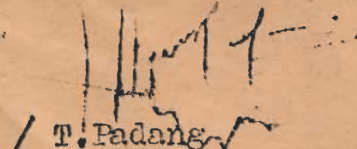 T. Padang